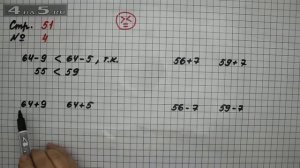 4-5.RU
Стр. 51
№ 4
64-9 < 64-5, т.к.
55 < 59
56+7 59+7
64+9 64+5
56-7 59-7